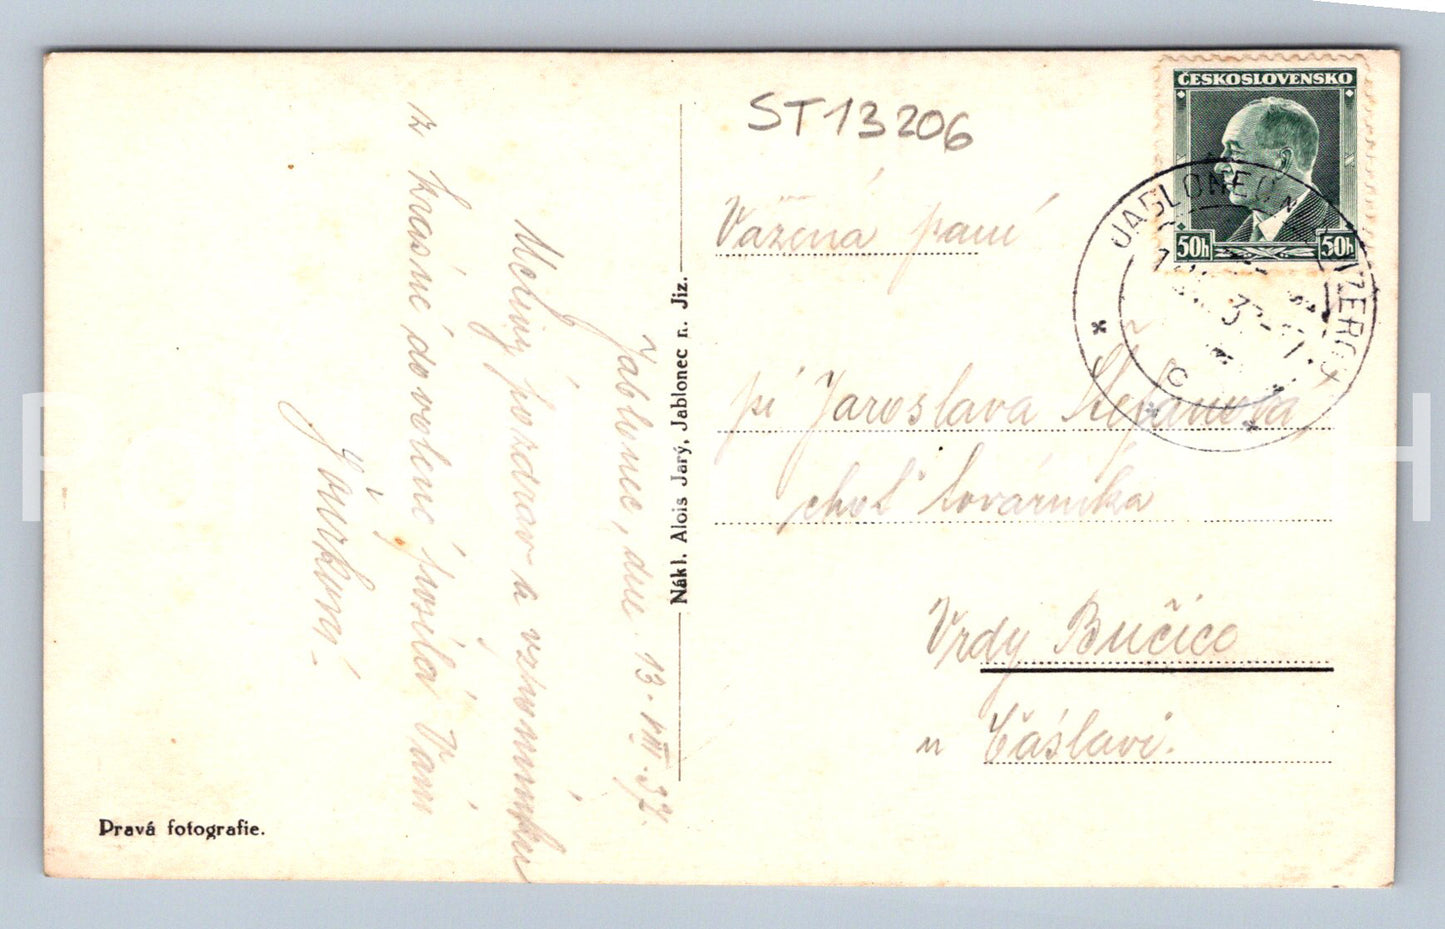 ST13206
ČESKOSLOVENSKO
50h 50h
JABLONEC N
Vážená paní
pí Jaroslava Štěpánová
choť továrníka
Vrdy Bučice
u Čáslavi.
Nákl. Alois Jarý, Jablonec n. Jiz.
Jablonec, dne 13. VIII. 37.
Uctivý pozdrav a vzpomínku
z krásné dovolené posílá Vám
Pravá fotografie.